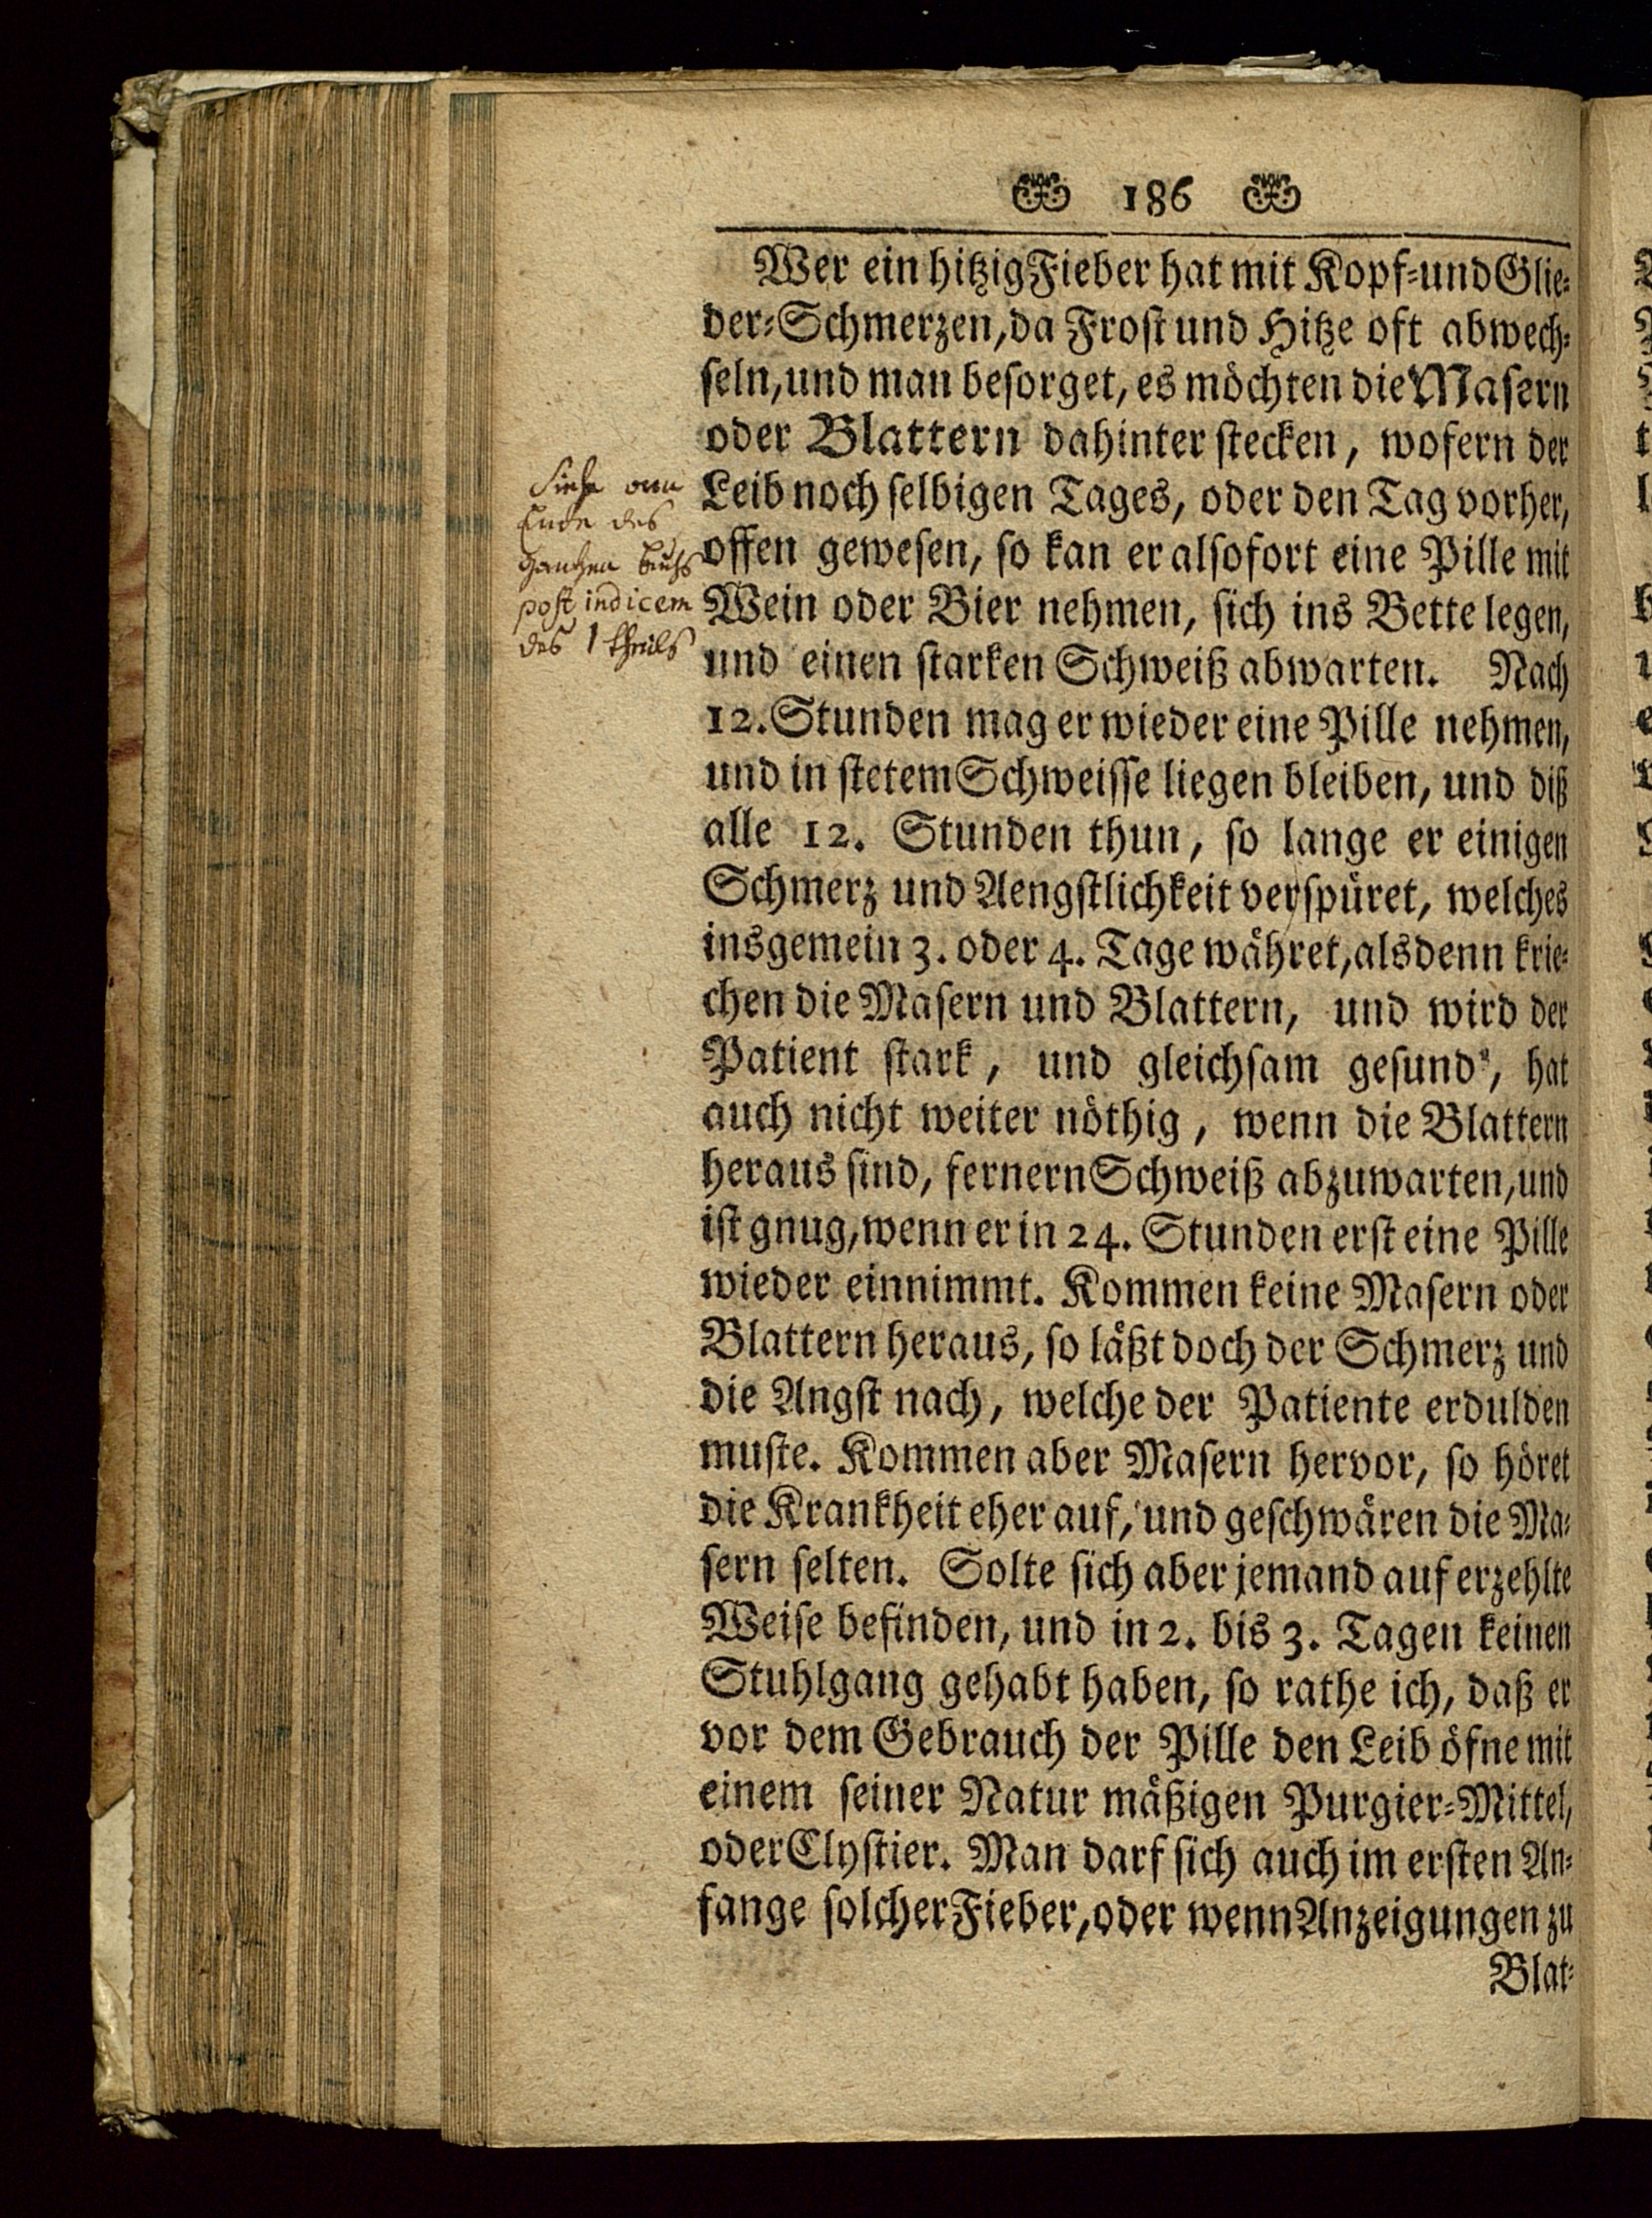 186
Wer ein hitzig Fieber hat mit Kopf- und Glie-
der-Schmerzen, da Frost und Hitze oft abwech-
seln, und man besorget, es möchten die Masern
oder Blattern dahinter stecken, wofern der
Leib noch selbigen Tages, oder den Tag vorher,
offen gewesen, so kan er alsofort eine Pille mit
Wein oder Bier nehmen, sich ins Bette legen,
und einen starken Schweiß abwarten. Nach
12. Stunden mag er wieder eine Pille nehmen,
und in stetem Schweisse liegen bleiben, und diß
alle 12. Stunden thun, so lange er einigen
Schmerz und Aengstlichkeit verspüret, welches
insgemein 3. oder 4. Tage währet, alsdenn krie-
chen die Masern und Blattern, und wird der
Patient stark, und gleichsam gesund, hat
auch nicht weiter nöthig, wenn die Blattern
heraus sind, fernern Schweiß abzuwarten, und
ist gnug, wenn er in 24. Stunden erst eine Pille
wieder einnimmt. Kommen keine Masern oder
Blattern heraus, so läßt doch der Schmerz und
die Angst nach, welche der Patiente erdulden
muste. Kommen aber Masern hervor, so höret
die Krankheit eher auf, und geschwären die Ma-
sern selten. Solte sich aber jemand auf erzehlte
Weise befinden, und in 2. bis 3. Tagen keinen
Stuhlgang gehabt haben, so rathe ich, daß er
vor dem Gebrauch der Pille den Leib öfne mit
einem seiner Natur mäßigen Purgier-Mittel,
oder Clystier. Man darf sich auch im ersten An-
fange solcher Fieber, oder wenn Anzeigungen zu
Blat-
Siehe am
Ende des
gantzen buchs
post indicem
des 1 theils